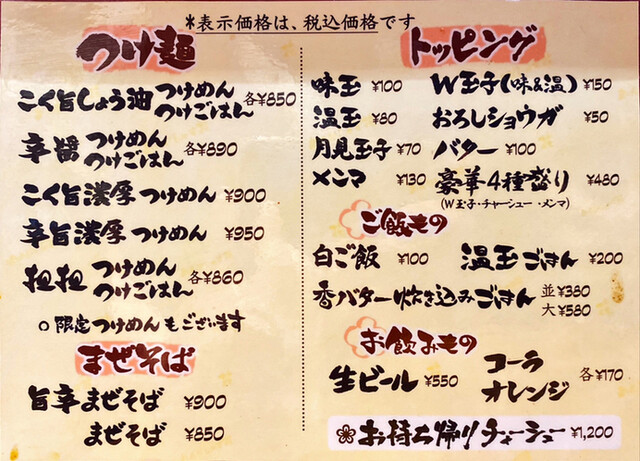 *表示価格は、税込価格です
つけ麺
こく旨しょう油 つけめん つけごはん 各¥850
辛醤 つけめん つけごはん 各¥890
こく旨濃厚つけめん ¥900
辛旨濃厚つけめん ¥950
担担 つけめん つけごはん 各¥860
○限定つけめんもございます
まぜそば
旨辛まぜそば ¥900
まぜそば ¥850
トッピング
味玉 ¥100 W玉子(味&温) ¥150
温玉 ¥80 おろしショウガ ¥50
月見玉子 ¥70 バター ¥100
メンマ ¥130 豪華4種盛り ¥480
(W玉子・チャーシュー・メンマ)
ご飯もの
白ご飯 ¥100 温玉ごはん ¥200
香バター炊き込みごはん 並¥380 大¥580
お飲みもの
生ビール ¥550 コーラ オレンジ 各¥170
お持ち帰りチャーシュー ¥1,200